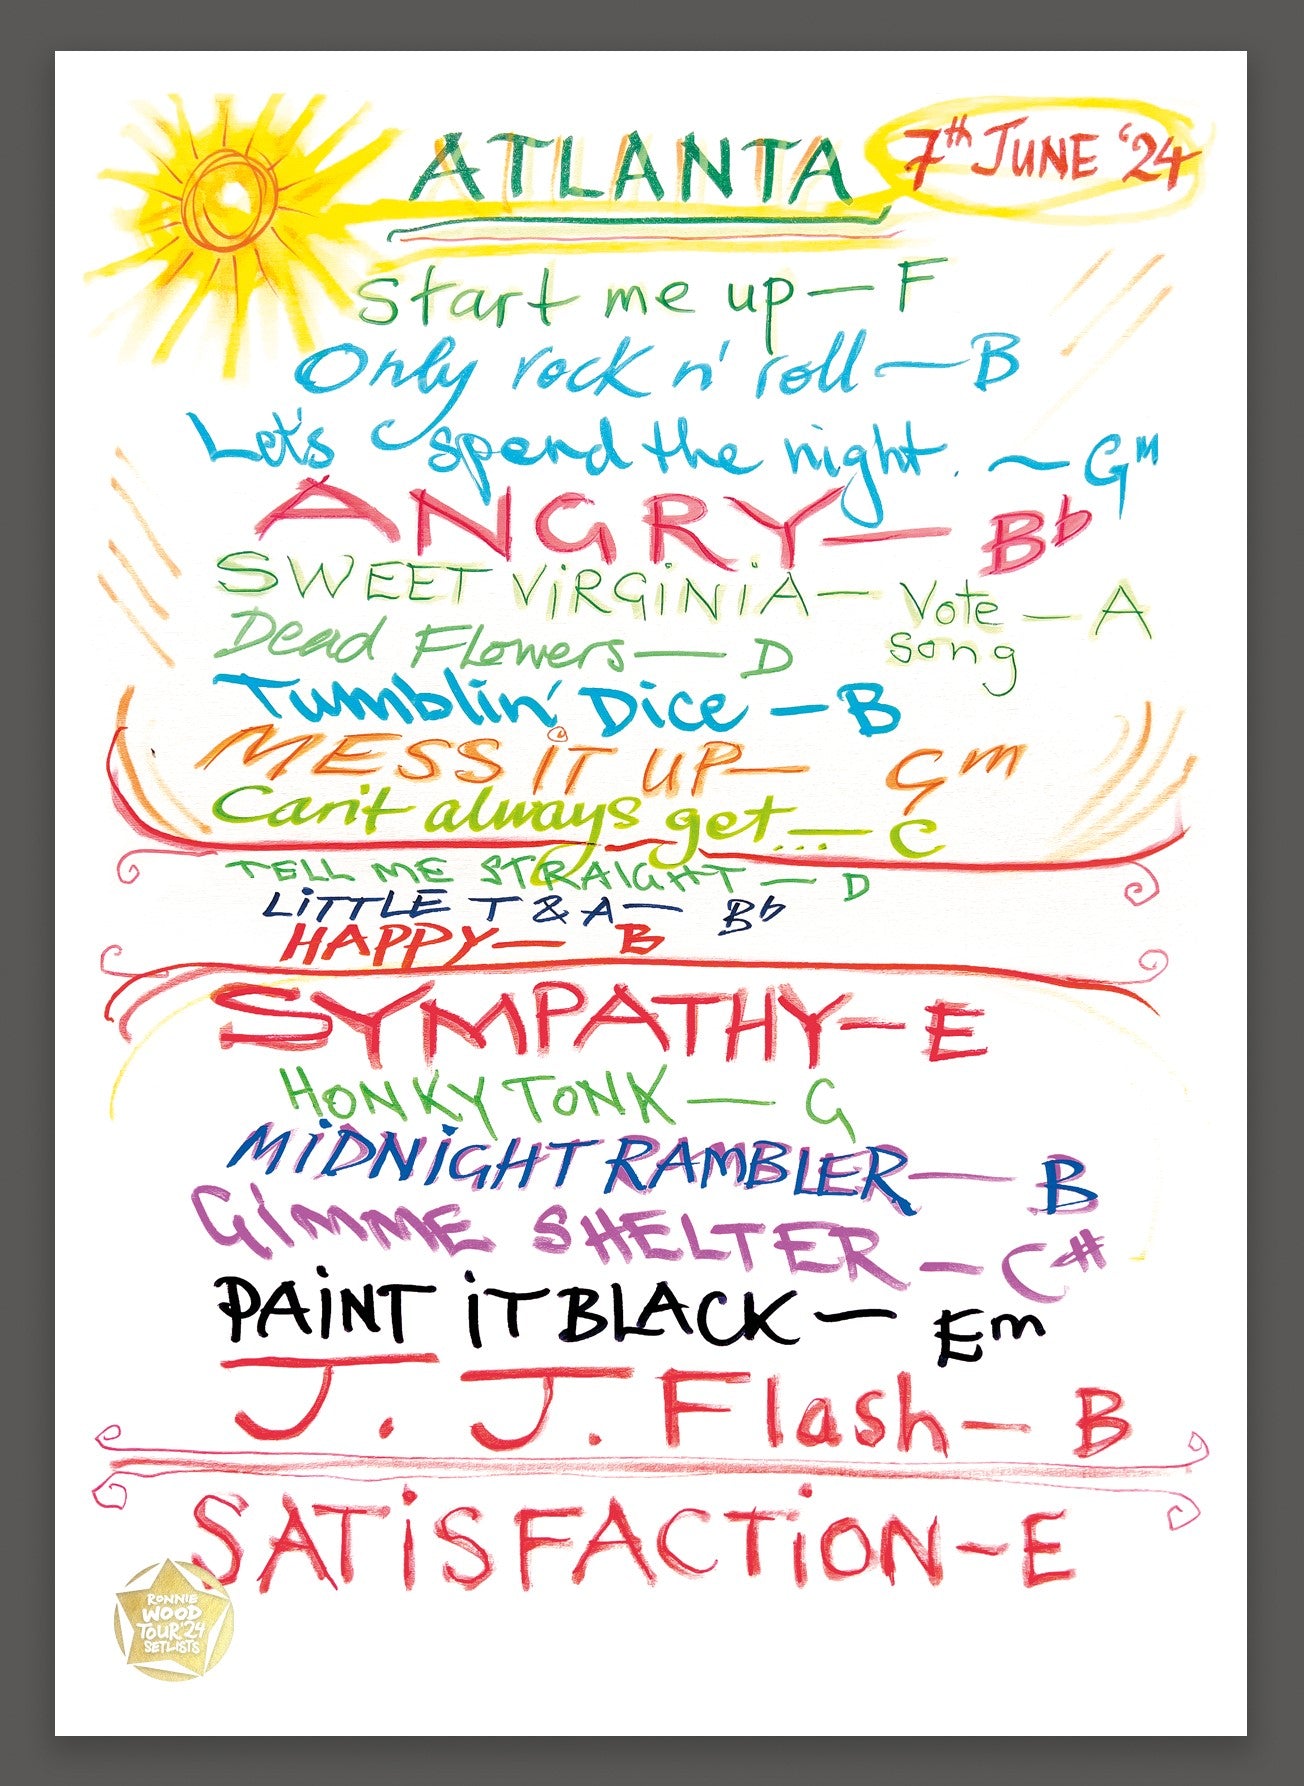 ATLANTA 7th JUNE '24
Start me up — F
Only rock n' roll — B
Let's spend the night. ~ Gm
ANGRY — Bb
SWEET ViRGiNiA — Vote song — A
Dead Flowers — D
Tumblin' Dice — B
MESS iT UP — Gm
Can't always get... — C
TELL ME STRAIGHT — D
LiTTLE T & A — Bb
HAPPY — B
SYMPATHY — E
HONKY TONK — G
MiDNiGHT RAMBLER — B
GiMME SHELTER — C#
PAiNT iT BLACK — Em
J. J. Flash — B
SATiSFACTiON - E
RONNIE
WOOD
TOUR '24
SETLISTS